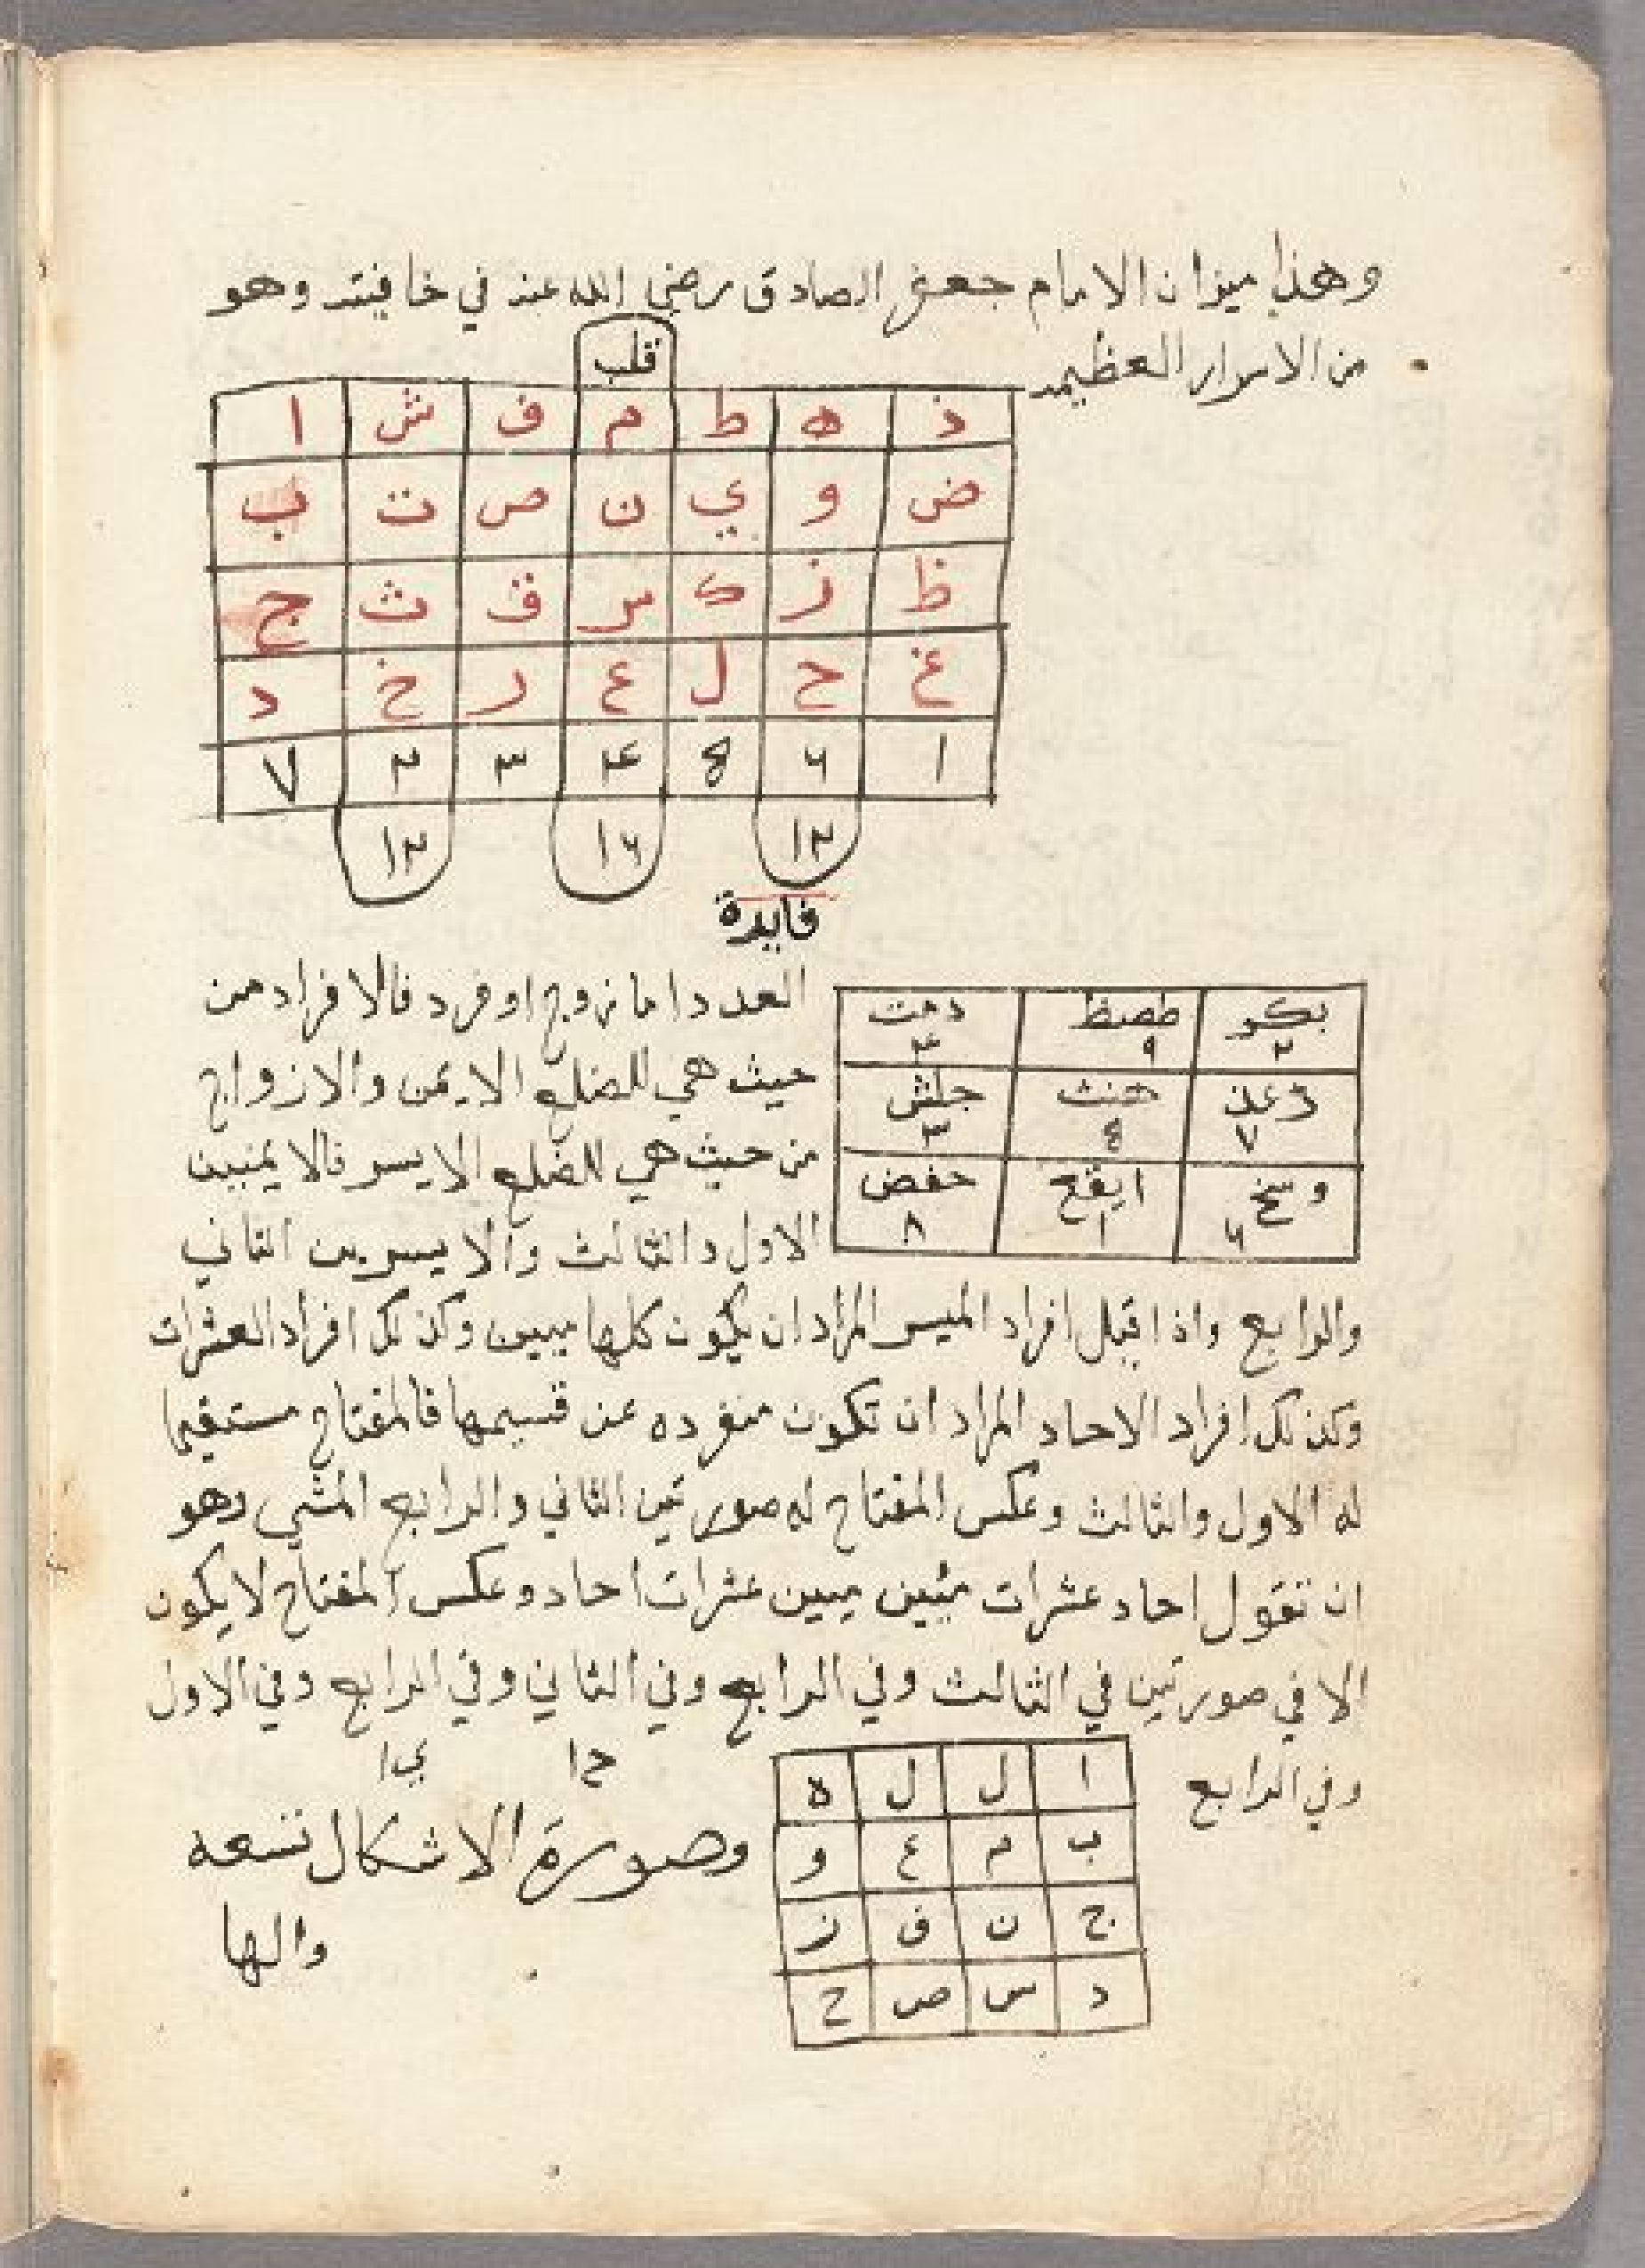 وهذا ميزان الامام جعفر الصادق رضي الله عنه في خافيته وهو
من الاسرار العظيمه
قلب
ذ ه ط م ف ش ا
ض و ي ن ص ت ب
ظ ز ك س ق ث ج
غ ح ل ع ر خ د
١ ٦ ٥ ٤ ٣ ٢ ٧
١٢ ١٦ ١٢
فايدة
بكر طصظ دمت
٢ ٩ ٤
زعذ هنث جلش
٧ ٥ ٣
وسخ ايقغ حفض
٦ ١ ٨
العدد اما زوج او فرد فالافراد من
حيث هي للضلع الايمن والازواج
من حيث هي للضلع الايسر فالايمنين
الاول والثالث والايسرين الثاني
والرابع واذا قيل افراد الميسر المراد ان يكون كلها ميين وكذلك افراد العشرات
وكذلك افراد الاحاد المراد ان تكون منفرده عن قسيمها فالمفتاح مستقيما
له الاول والثالث وعكس المفتاح له صورتين الثاني والرابع المشي وهو
ان تقول احاد عشرات ميين ميين عشرات احاد وعكس المفتاح لا يكون
الا في صورتين في الثالث وفي الرابع وفي الثاني وفي الرابع وفي الاول
وفي الرابع
ا ل ل ه
ب م ع و
ج ن ف ز
د س ص ح
وصورة الاشكال تسعه
والها